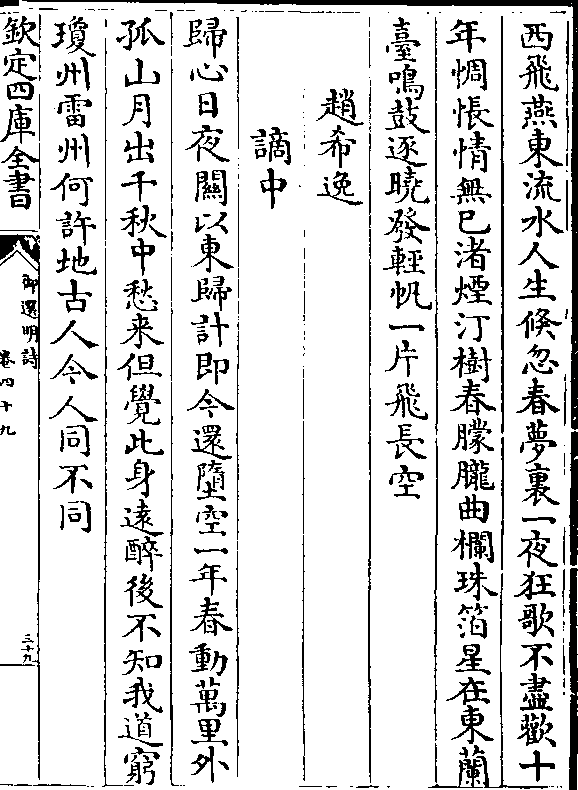 西飛燕東流水人生倏忽春夢裏一夜狂歌不盡歡十
年惆悵情無已渚煙汀樹春朦朧曲欄珠箔星在東蘭
臺鳴鼓逐曉發輕帆一片飛長空
趙希逸
謫中
歸心日夜關以東歸計即今還墮空一年春動萬里外
孤山月出千秋中愁来但覺此身遠醉後不知我道窮
瓊州雷州何許地古人今人同不同
欽定四庫全書
御選明詩
卷四十九
三十九